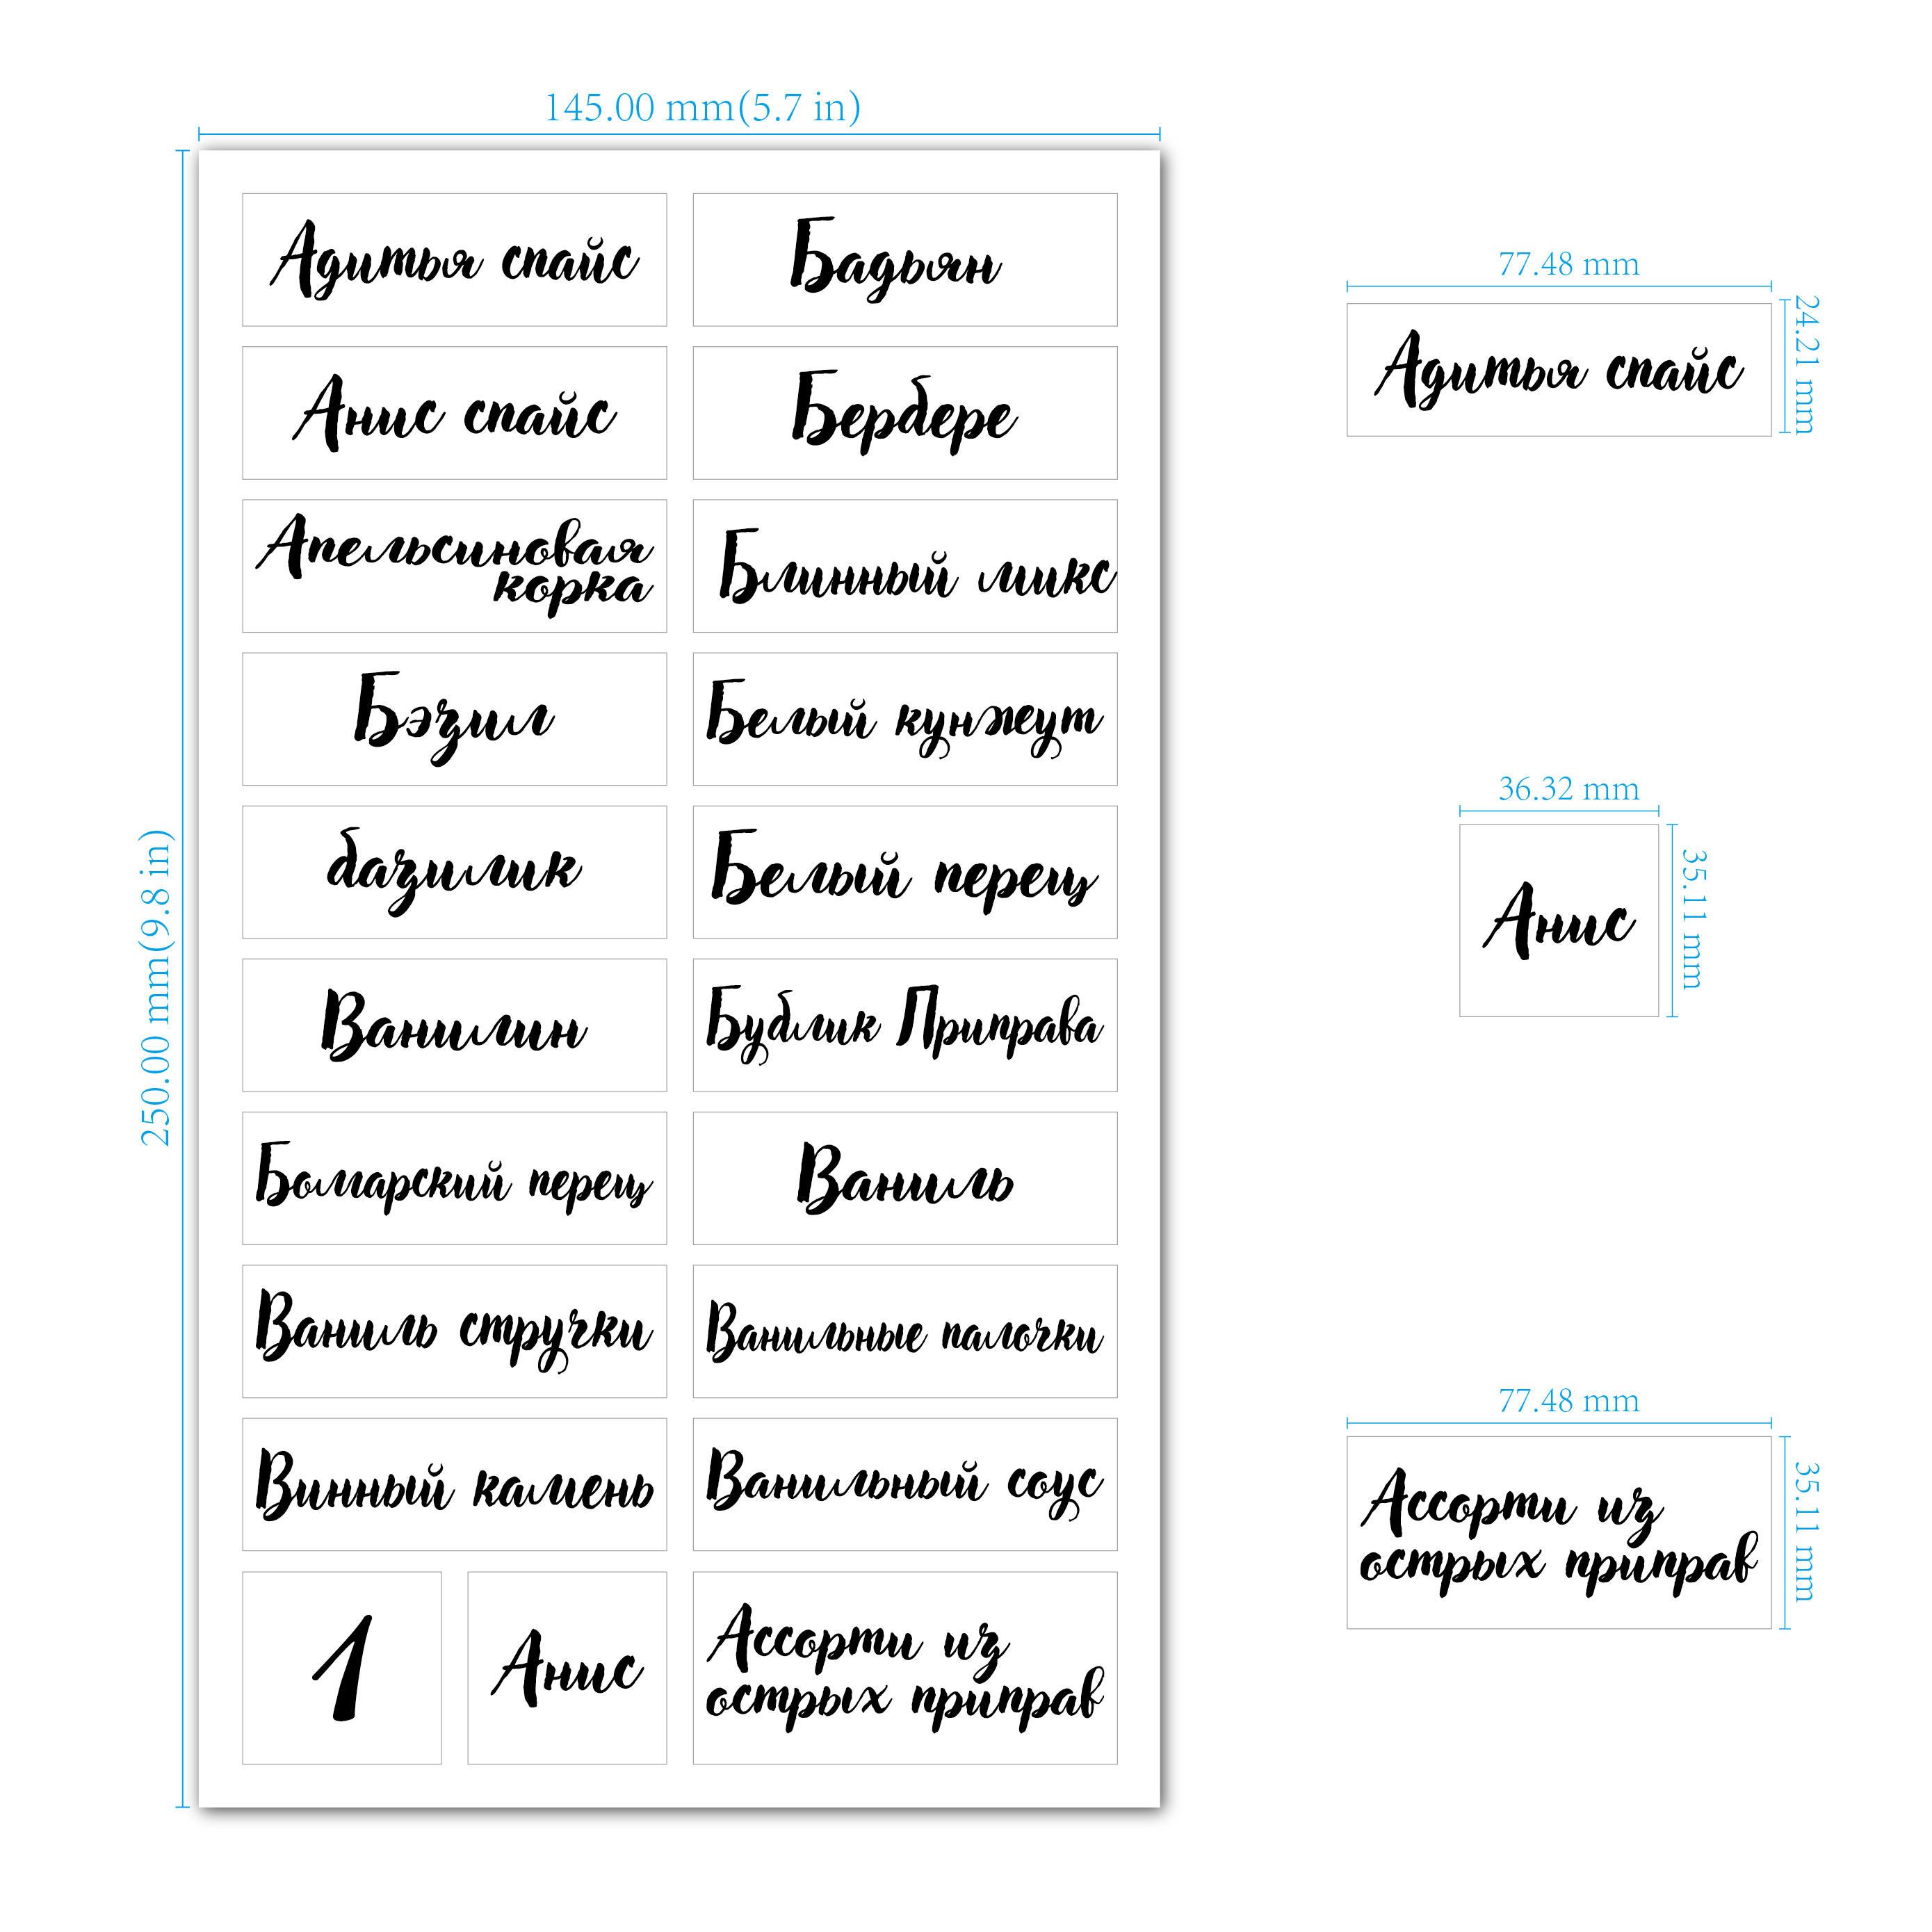 145.00 mm(5.7 in)
250.00 mm(9.8 in)
Адитья спайс
Бадьян
Анис спайс
Бербере
Апельсиновая
корка
Блинный микс
Бэзил
Белый кунжеут
базилик
Белый перец
Ванилин
Бублик Приправа
Болгарский перец
Ваниль
Ваниль стручки
Ванильные палочки
Винный камень
Ванильный соус
1
Анис
Ассорти из
острых приправ
77.48 mm
24.21 mm
Адитья спайс
36.32 mm
35.11 mm
Анис
77.48 mm
35.11 mm
Ассорти из
острых приправ